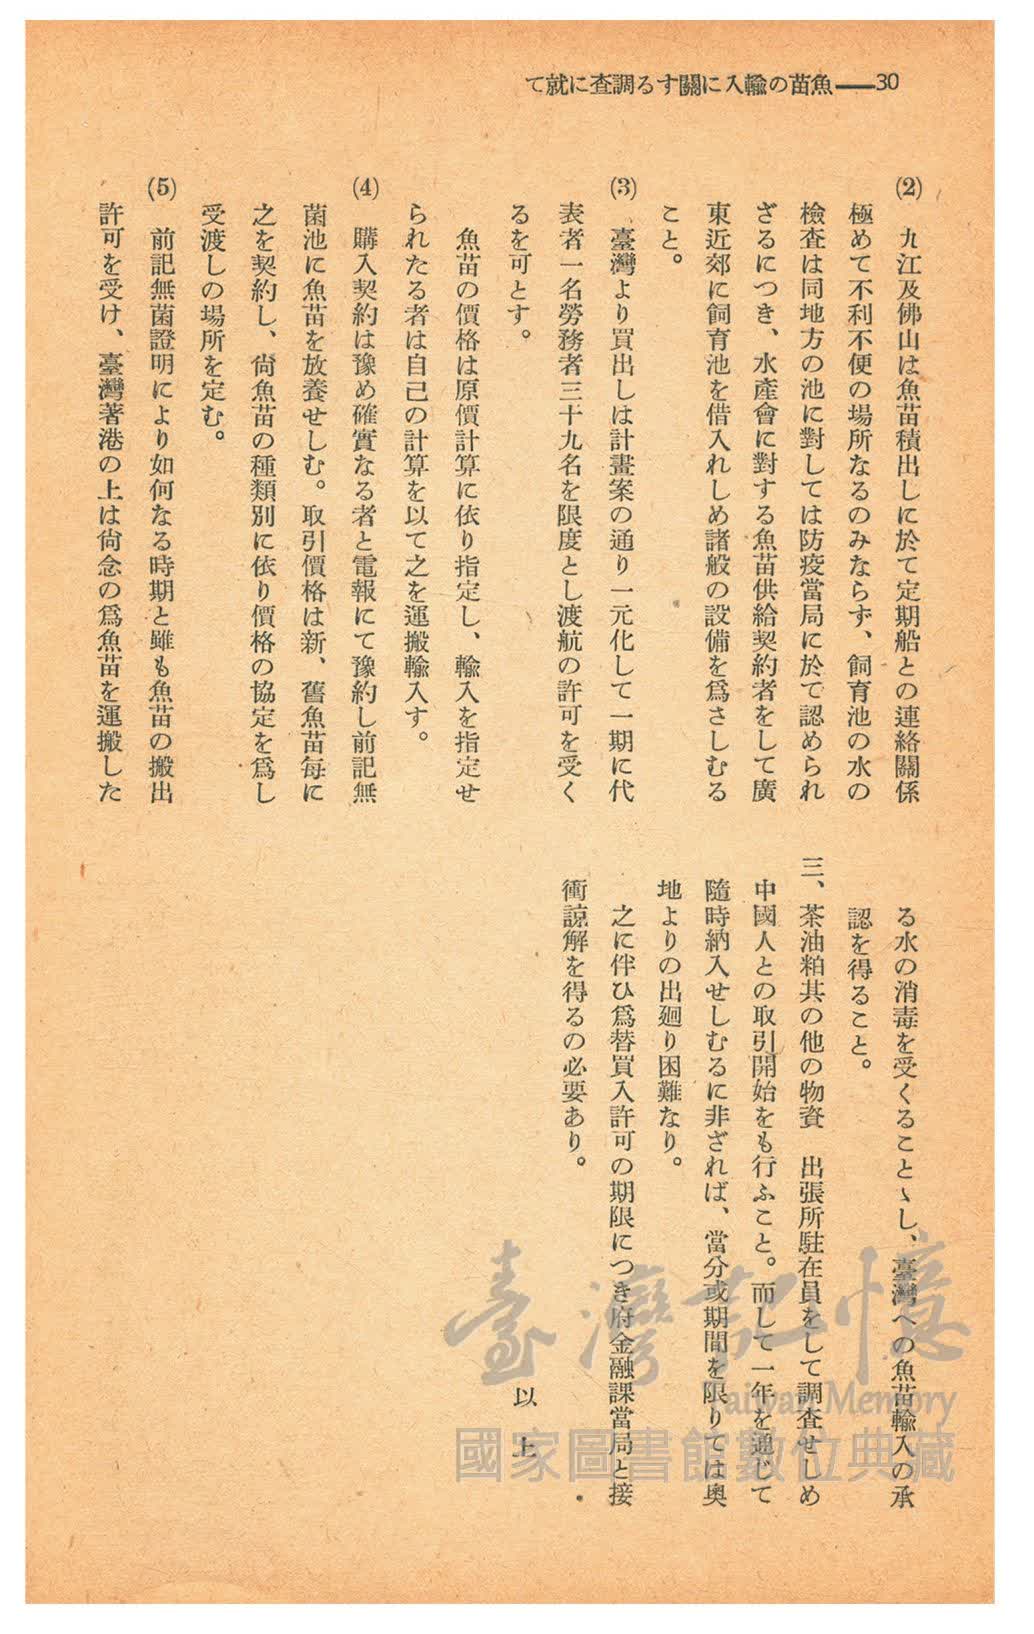 て就に査調るす關に入輸の苗魚——30
(2) 九江及佛山は魚苗積出しに於て定期船との連絡關係
極めて不利不便の場所なるのみならず、飼育池の水の
檢査は同地方の池に對しては防疫當局に於て認められ
ざるにつき、水產會に對する魚苗供給契約者をして廣
東近郊に飼育池を借入れしめ諸般の設備を爲さしむる
こと。
(3) 臺灣より買出しは計畫案の通り一元化して一期に代
表者一名勞務者三十九名を限度とし渡航の許可を受く
るを可とす。
魚苗の價格は原價計算に依り指定し、輸入を指定せ
られたる者は自己の計算を以て之を運搬輸入す。
(4) 購入契約は豫め確實なる者と電報にて豫約し前記無
菌池に魚苗を放養せしむ。取引價格は新、舊魚苗每に
之を契約し、尙魚苗の種類別に依り價格の協定を爲し
受渡しの場所を定む。
(5) 前記無菌證明により如何なる時期と雖も魚苗の搬出
許可を受け、臺灣著港の上は尙念の爲魚苗を運搬した
る水の消毒を受くることゝし、臺灣への魚苗輸入の承
認を得ること。
三、茶油粕其の他の物資 出張所駐在員をして調査せしめ
中國人との取引開始をも行ふこと。而して一年を通じて
隨時納入せしむるに非ざれば、當分或期間を限りては奧
地よりの出廻り困難なり。
之に伴ひ爲替買入許可の期限につき府金融課當局と接
衝諒解を得るの必要あり。
以上
臺灣記憶
Taiwan Memory
國家圖書館數位典藏